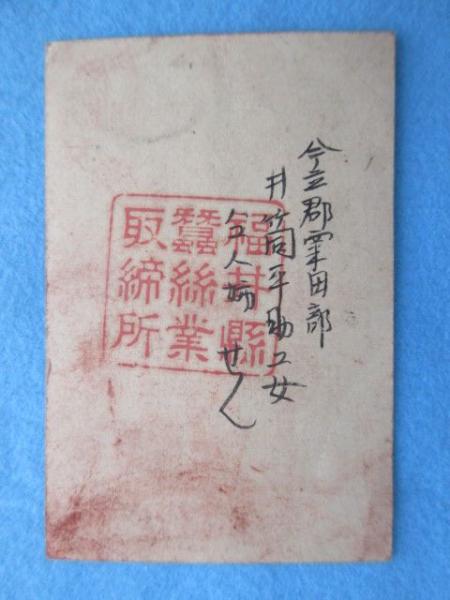 今立郡粟田部
井筒平助工女
せん
福井縣
蠶絲業
取締所